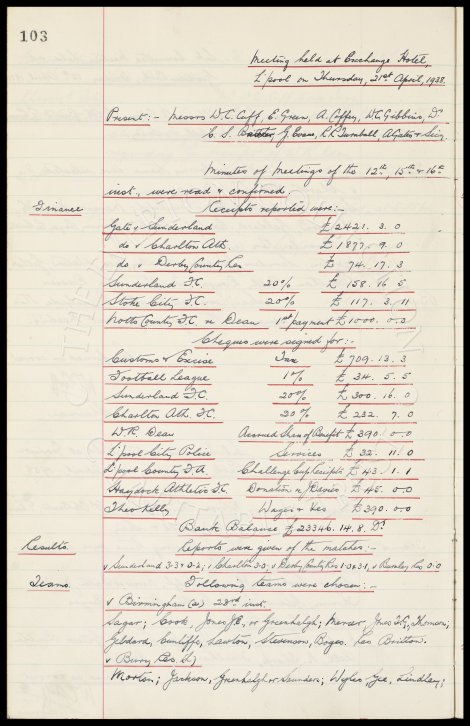 103
Meeting held at Exchange Hotel,
L'pool on Thursday, 21st April, 1938.
Present:- Messrs W.C. Cuff, E. Green, A. Coffey, W.C. Gibbins, Dr
C. S. Baxter, J. Evans, R.R. Turnbull A. Gates & Secy.
Minutes of Meetings of the 12th, 15th & 16th
inst., were read & confirmed.
Finance Receipts reported were:-
Gate v Sunderland £2421. 3. 0
do v Charlton Ath. £1877. 9. 0
do v Derby County Res £ 74. 17. 3
Sunderland F.C. 20% £ 158. 16. 5
Stoke City F.C. 20% £ 117. 3. 11
Notts County F.C. re Dean 1st payment £1000. 0. 0
Cheques were signed for:-
Customs & Excise Tax £709. 13. 3
Football League 1% £ 34. 5. 5
Sunderland F.C. 20% £ 300. 16. 0
Charlton Ath. F.C. 20% £ 232. 7. 0
W.R. Dean Accrued Share of Benefit £390. 0. 0
L'pool City Police Services £ 32. 11. 0
L'pool County F.A. Challenge Cup Receipts £ 43. 1. 1
Haydock Athletic F.C. Donation re J Davies £ 45. 0. 0
Theo Kelly Wages & Exes £390. 0. 0
Bank Balance £23346. 14. 8. Dr
Results. Reports were given of the matches:-
v Sunderland 3-3 & 0-2; v Charlton 3-0; v Derby County Res 1-0 & 3-1; v Burnley Res 0-0
Teams. Following teams were chosen:-
v Birmingham (a) 23rd inst.
Sagar; Cook, Jones J.E. or Greenhalgh; Mercer, Jones T.G., Thomson;
Geldard, Cunliffe, Lawton, Stevenson, Boyes. Res Britton.
v Bury Res.
Morton; Jackson, Greenhalgh or Saunders; Wyles, Gee, Lindley;